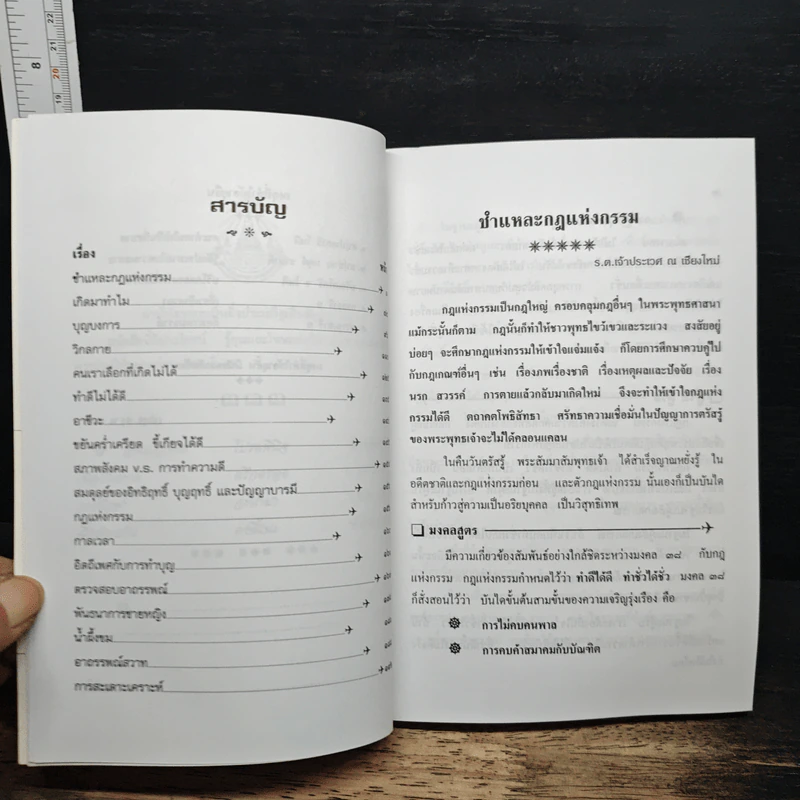 8
22
21
20
19
สารบัญ
เรื่อง
ชำแหละกฎแห่งกรรม
เกิดมาทำไม
บุญบงการ
วิกลกาย
คนเราเลือกที่เกิดไม่ได้
ทำดีไม่ได้ดี
อาชีวะ
ขยันคร่ำเครียด ขี้เกียจได้ดี
สภาพสังคม v.s. การทำความดี
สมดุลย์ของอิทธิฤทธิ์ บุญฤทธิ์ และปัญญาบารมี
กฎแห่งกรรม
กาลเวลา
อิตถีเพศกับการทำบุญ
ตรวจสอบอาถรรพณ์
พันธนาการชายหญิง
น้ำผึ้งขม
อาถรรพณ์สวาท
การสะเดาะเคราะห์
ชำแหละกฎแห่งกรรม
ร.ต.เจ้าประเวศ ณ เชียงใหม่
กฎแห่งกรรมเป็นกฎใหญ่ ครอบคลุมกฎอื่นๆ ในพระพุทธศาสนา
แม้กระนั้นก็ตาม กฎนั้นก็ทำให้ชาวพุทธไขว้เขวและระแวง สงสัยอยู่
บ่อยๆ จะศึกษากฎแห่งกรรมให้เข้าใจแจ่มแจ้ง ก็โดยการศึกษาควบคู่ไป
กับกฎเกณฑ์อื่นๆ เช่น เรื่องภพเรื่องชาติ เรื่องเหตุผลและปัจจัย เรื่อง
นรก สวรรค์ การตายแล้วกลับมาเกิดใหม่ จึงจะทำให้เข้าใจกฎแห่ง
กรรมได้ดี ตถาคตโพธิสัทธา ศรัทธาความเชื่อมั่นในปัญญาการตรัสรู้
ของพระพุทธเจ้าจะไม่ได้คลอนแคลน
ในคืนวันตรัสรู้ พระสัมมาสัมพุทธเจ้า ได้สำเร็จญาณหยั่งรู้ ใน
อดีตชาติและกฎแห่งกรรมก่อน และตัวกฎแห่งกรรม นั้นเองก็เป็นบันได
สำหรับก้าวสู่ความเป็นอริยบุคคล เป็นวิสุทธิเทพ
มงคลสูตร
มีความเกี่ยวข้องสัมพันธ์อย่างใกล้ชิดระหว่างมงคล ๓๘ กับกฎ
แห่งกรรม กฎแห่งกรรมกำหนดไว้ว่า ทำดีได้ดี ทำชั่วได้ชั่ว มงคล ๓๘
ก็สั่งสอนไว้ว่า บันไดขั้นต้นสามขั้นของความเจริญรุ่งเรือง คือ
การไม่คบคนพาล
การคบค้าสมาคมกับบัณฑิต